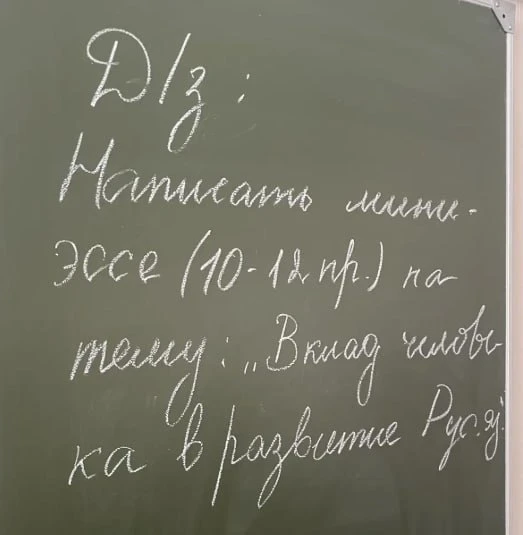 Д/з:
Написать мини-
эссе (10-12 пр.) на
тему: „Вклад челове-
ка в развитие Рус. яз.